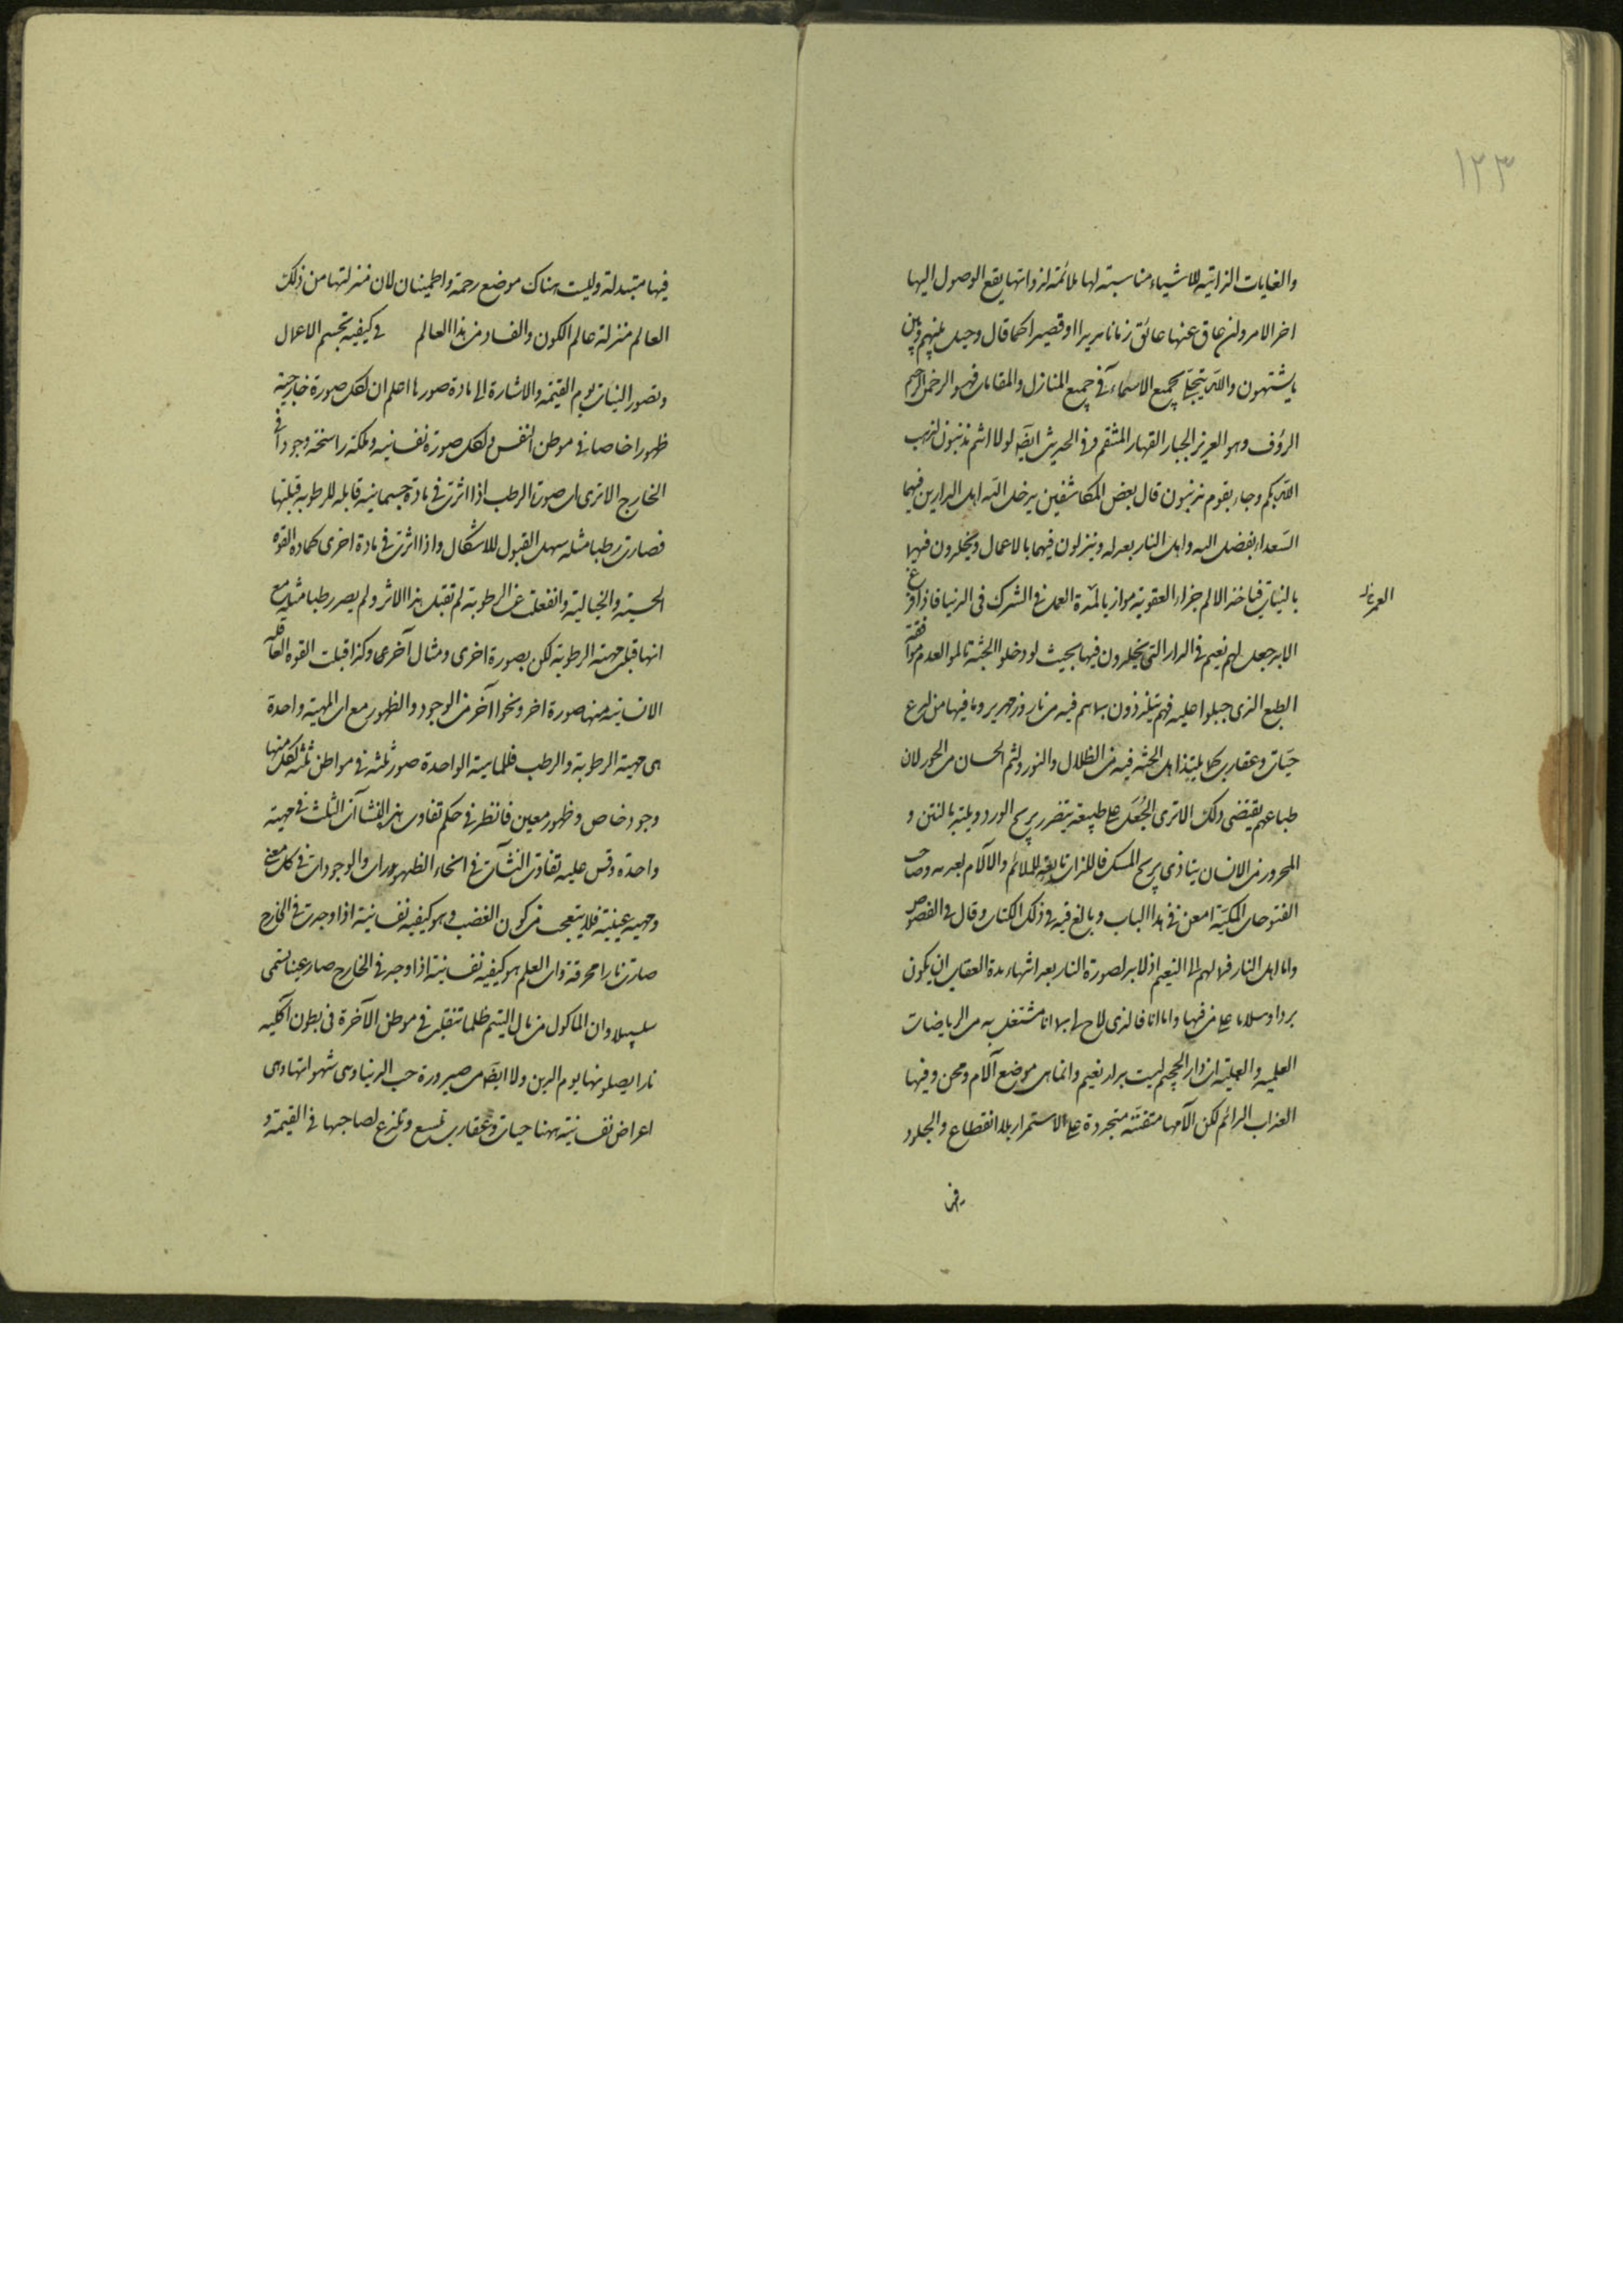 ١٢٣
والغايات الذاتية للاشياء مناسبته لها ملائمة لذواتها يقع الوصول اليها
اخر الامر ولن عاق عنها عائق زمانا مديرا او قصيرا كما قال وحيل بينهم وبين
ما يشتهون والله يتجلى بجميع الاسماء فى جميع المنازل والمقامات فهو الرحمن الرحيم
الرؤف وهو العزيز الجبار القهار المنتقم وفى الحديث ايضا لولا انتم تذنبون لذهب
الله بكم وجاء بقوم يذنبون قال بعض المكاشفين يدخل الله اهل الدارين فيهما
السعداء بفضل الله واهل النار بعدله وينزلون فيهما بالاعمال ويخلدون فيهما
بالنيات فياخذ الالم جزاء العقوبة موازيا لمدة العمر فى الشرك فى الدنيا فاذا فرغ
العمر
الامد جعل لهم نعيم فى الدار التى يخلدون فيها بحيث لو دخلوا الجنة تالموا لعدم موافقة
الطبع الذى جبلوا عليه فهم يتلذذون بما هم فيه من نار وزمهرير وما فيها من لدغ
حيات وعقارب كما يلتذ اهل الجنة فيه من الظلال والنور ولثم الحسان من الحور لان
طباعهم يقتضى ذلك الا ترى الجعل على طبيعة يتضرر بريح الورد ويلتذ بالنتن و
المحرور من الانسان يتاذى بريح المسك فاللذات تابعة للملائم والآلام لعدمه وصاحب
الفتوحات المكية امعن فى هذا الباب وبالغ فيه فى ذلك الكتاب وقال فى الفصوص
واما اهل النار فمالهم الى النعيم اذ لابد لصورة النار بعد انتهاء مدة العقاب ان يكون
بردا وسلاما على من فيها واما انا فالذى لاح لى بما انا مشتغل به من الرياضات
العلمية والعملية ان دار الجحيم ليست بدار نعيم وانما هى موضع آلام ومحن وفيها
العذاب الدائم لكن آلامها متفننة متجددة على الاستمرار بلا انقطاع والجلود
فيها متبدلة وليست هناك موضع رحمة واطمينان لان منزلتها من ذلك
العالم منزلة عالم الكون والفساد من هذا العالم فى كيفية تجسم الاعمال
وتصور النيات يوم القيمة والاشارة الى مادة صورها اعلم ان لكل صورة خارجية
ظهورا خاصا فى موطن النفس ولكل صورة نفسانية وملكة راسخة وجودا فى
الخارج الا ترى ان صورة الرطب اذا اثرت فى مادة جسمانية قابلة للرطوبة قبلتها
فصارت رطبا مثله سهل القبول للاشكال واذا اثرت فى مادة اخرى كمادة القوة
الحسية والخيالية وانفعلت عن الرطوبة لم تقبل هذا الاثر ولم يصر رطبا مثله مع
انها قبلت مهية الرطوبة لكن بصورة اخرى ومثال آخرى وكذا قبلت القوة العاقلة
الانسانية منها صورة اخر ونحوا آخر من الوجود والظهور مع ان المهية واحدة
هى مهية الرطوبة والرطب فللماهية الواحدة صور ثلثة فى مواطن ثلثة لكل منها
وجود خاص وظهور معين فانظر فى حكم تفاوت هذه النشآت الثلث فى مهية
واحدة وقس عليه تفاوت النشآت فى انحاء الظهورات والوجودات فى كل معنى
ومهية عينية فلا يتعجب من كون الغضب وهو كيفية نفسانية اذا وجدت فى الخارج
صارت نارا محرقة وان العلم هو كيفية نفسانية اذا وجد فى الخارج صار عينا تسمى
سلسبيلا وان الماكول من مال اليتيم ظلما تنقلب فى موطن الآخرة فى بطون آكليه
نارا يصلونها يوم الدين ولا ايضا من صيرورة حب الدنيا وهى شهواتها وهى
اعراض نفسانية ههنا حيات وعقارب تلسع وتلدغ لصاحبها فى القيمة و